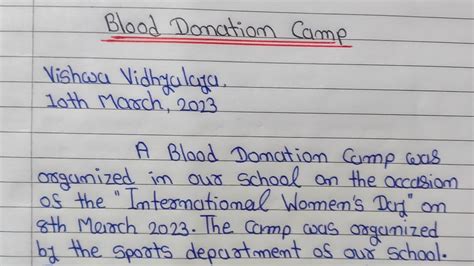 Blood Donation Camp
Vishwa Vidhyalaya.
10th March, 2023
A Blood Donation Camp was
organized in our school on the occasion
of the "International Women's Day" on
8th March 2023. The Camp was organized
by the sports department of our school.